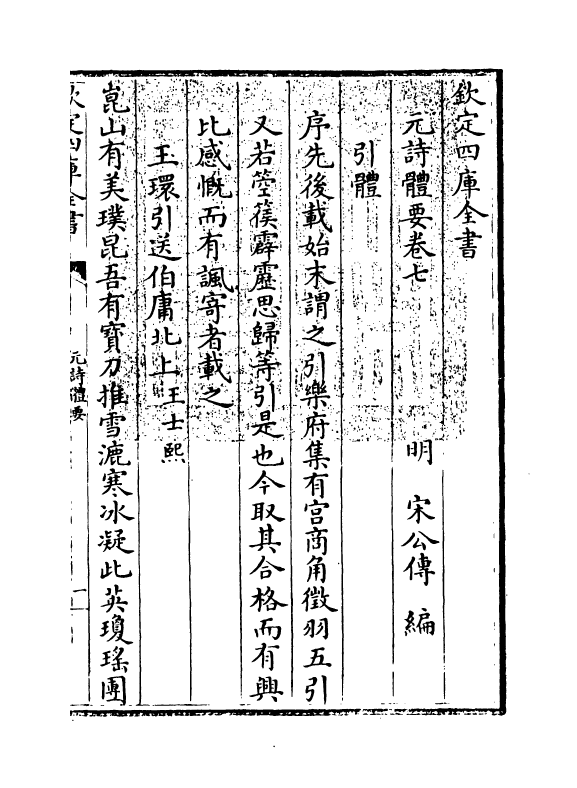 欽定四庫全書
元詩體要卷七
明 宋公傳 編
引體
序先後載始末謂之引樂府集有宮商角徵羽五引
又若箜篌霹靂思歸等引是也今取其合格而有興
比感慨而有諷寄者載之
王環引送伯庸北上 王士熙
崑山有美璞昆吾有寶刀推雪漉寒冰凝此英瓊瑤團
欽定四庫全書
元詩體要